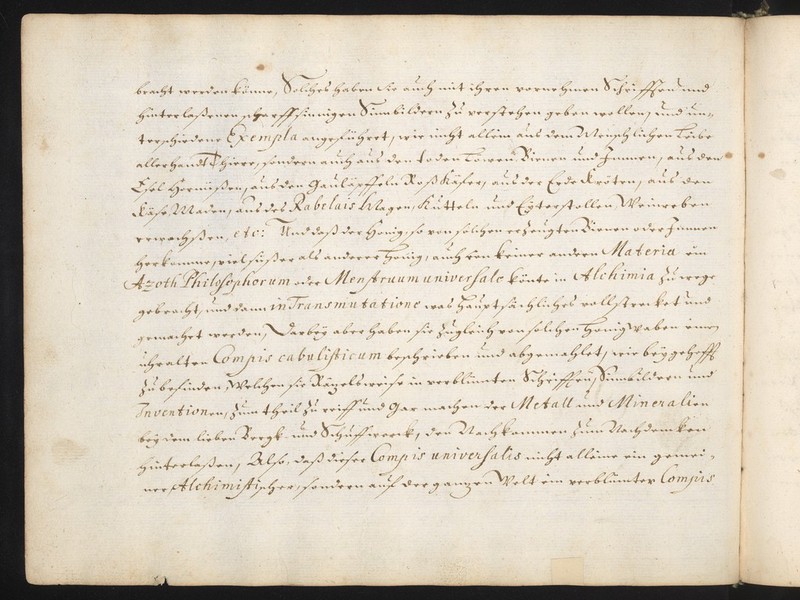 bracht werden könne, Solches haben sie auch mit ihren vornehmen Schrifften und
hinterlaßenen scharffsinnigen Sinnbildern zu verstehen geben wollen, und un-
terschiedene Exempla angeführet, wie nicht allein aus dem Menschlichen Leibe
allerhandt Thiere, sondern auch aus den toden Löwen Bienen und Immen, aus den
Esel Hornüßen, aus den Gauläpffeln Roß Käfer, aus der Erde Kröten, aus den
Käse Maden, aus des Rabelais Magen, Kutteln und Weinreben
erwachßen, etc: Und daß der Honig, so von solchen erzeugten Bienen oder Immen
herkomme, viel süßer als anderer Honig, auch von keiner andern Materia ein
Azoth Philosophorum oder Menstruum universale könte in Alchimia zu wege
gebracht, und dann in Transmutatione was hauptsächliches vollstrecket und
gemacht werden, Darbey aber haben sie zugleich von solchen Honigwaben einen
uhralten Compis cabulisticum beschrieben und abgemahlet, wie beygehefft
zu befinden, Welchen sie in verblümten Schrifften, Sinnbildern und
Inventionen, zum theil zu reiff und gar machen der Metall und Mineralien
bey dem lieben Bergk- und den Nachkommen zum Nachdencken
hinterlaßen, Also, daß dieser Compis universalis nicht alleine ein gemei-
ner Alchimistischer, sondern auf der ganzen Welt ein verblümter Compis